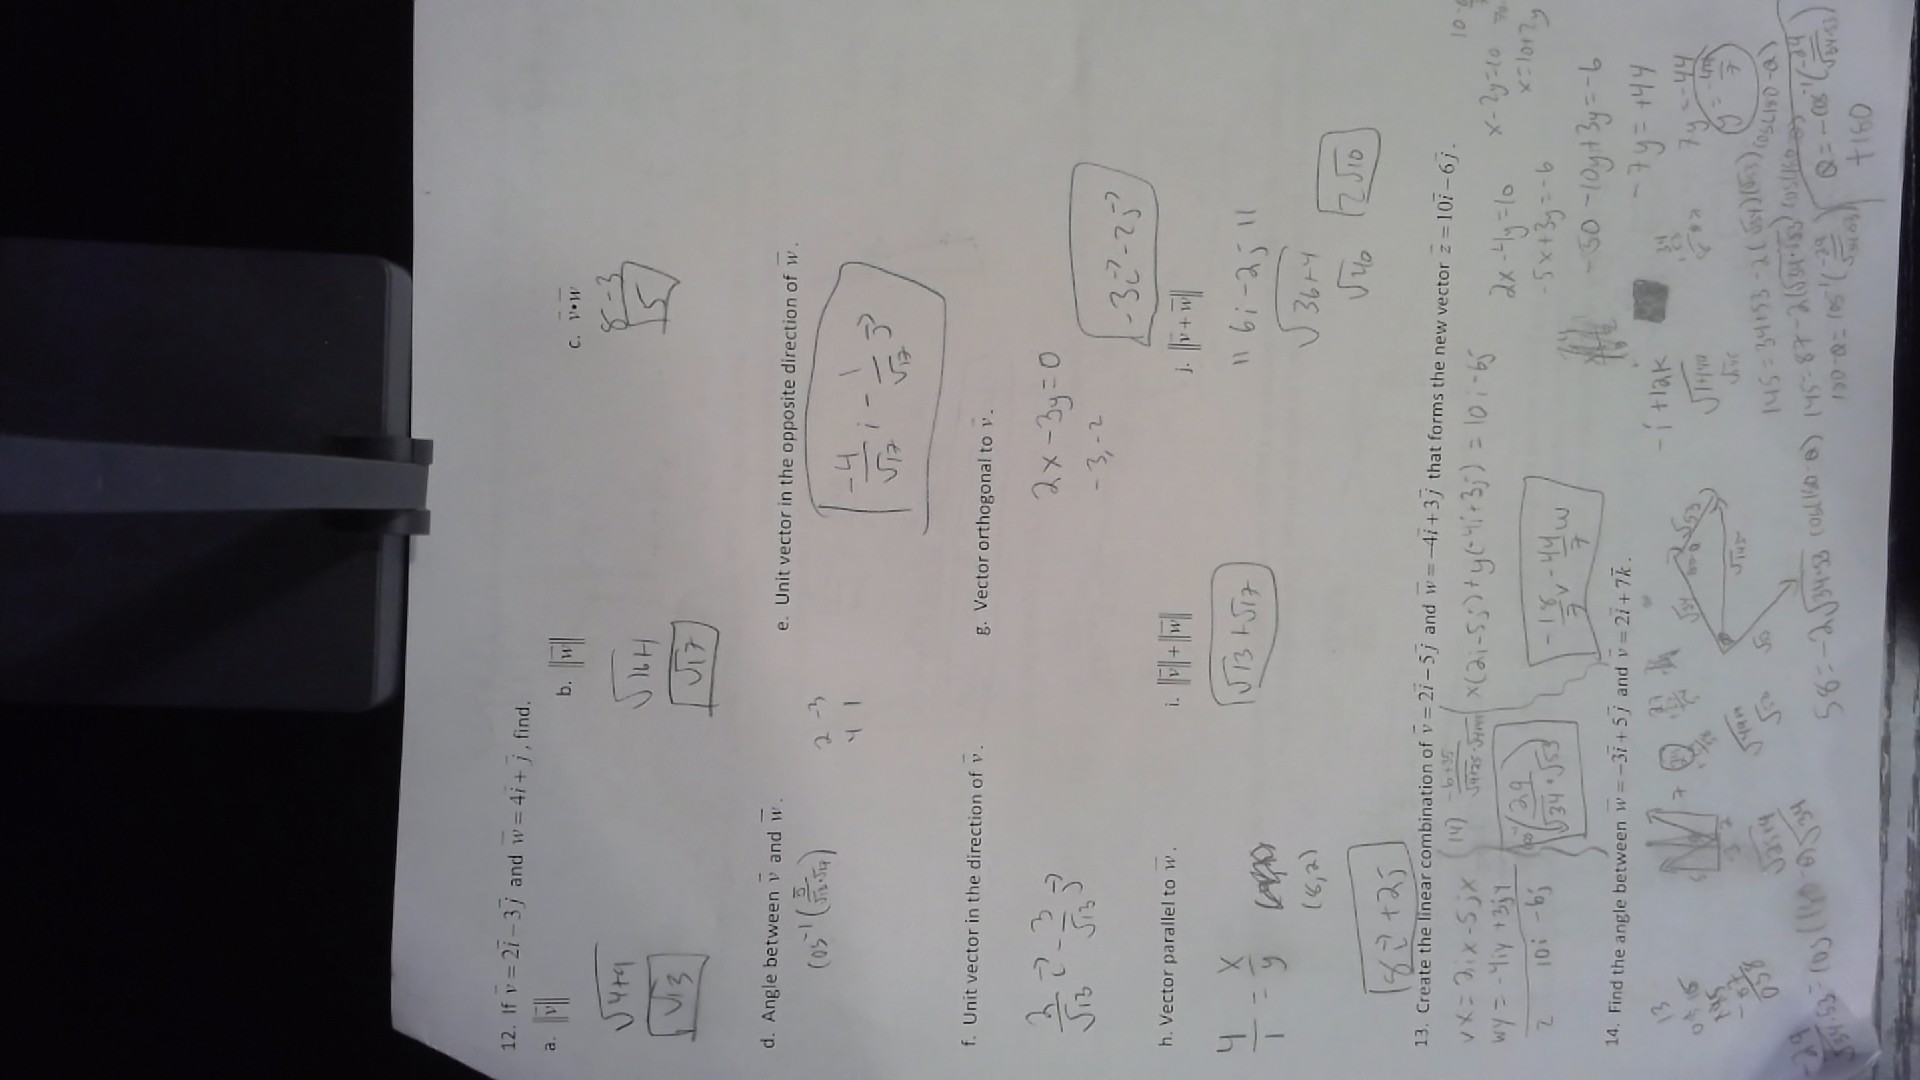 12. If v̄ = 2ī − 3j̄ and w̄ = 4ī + j̄, find.
a. ‖v̄‖
b. ‖w̄‖
c. v̄•w̄
√4+9
√13
√16+1
√17
8-3
5
d. Angle between v̄ and w̄.
e. Unit vector in the opposite direction of w̄.
cos⁻¹(5/√13·√17)
2 -3
4 1
-4/√17 i - 1/√17 j⃗
f. Unit vector in the direction of v̄.
g. Vector orthogonal to v̄.
2/√13 i⃗ - 3/√13 j⃗
2x-3y=0
-3,-2
-3i⃗-2j⃗
h. Vector parallel to w̄.
i. ‖v̄‖+‖w̄‖
j. ‖v̄+w̄‖
4/1 = x/y
(8,2)
8i⃗+2j
√13+√17
|| 6i-2j ||
√36+4
√40
2√10
13. Create the linear combination of v̄ = 2ī − 5j̄ and w̄ = −4ī + 3j̄ that forms the new vector z̄ = 10ī − 6j̄.
vx = 2ix-5jx
wy = -4iy+3jy
z 10i -6j
14) -6+35
(29/√34·√53)
x(2i-5j)+y(-4i+3j) = 10i-6j
-18/7 v - 44/7 w
2x-4y=10
-5x+3y=-6
x-2y=10
x=10+2y
-50-10y+3y=-6
-7y=+44
7y=-44
y=-44/7
14. Find the angle between w̄ = −3ī + 5j̄ and v̄ = 2ī + 7k̄.
-i+12k
√34
√53
√145
√25+9
√34
145=34+53-2(√34)(√53)cos(180-θ)
145=87-2(√34·√53)cos(180-θ)
58=-2√34·53 cos(180-θ)
-29/√34·53=cos(180-θ)
180-θ=cos⁻¹(-29/√34·53)
θ=-cos⁻¹(-29/√34·53)
+180